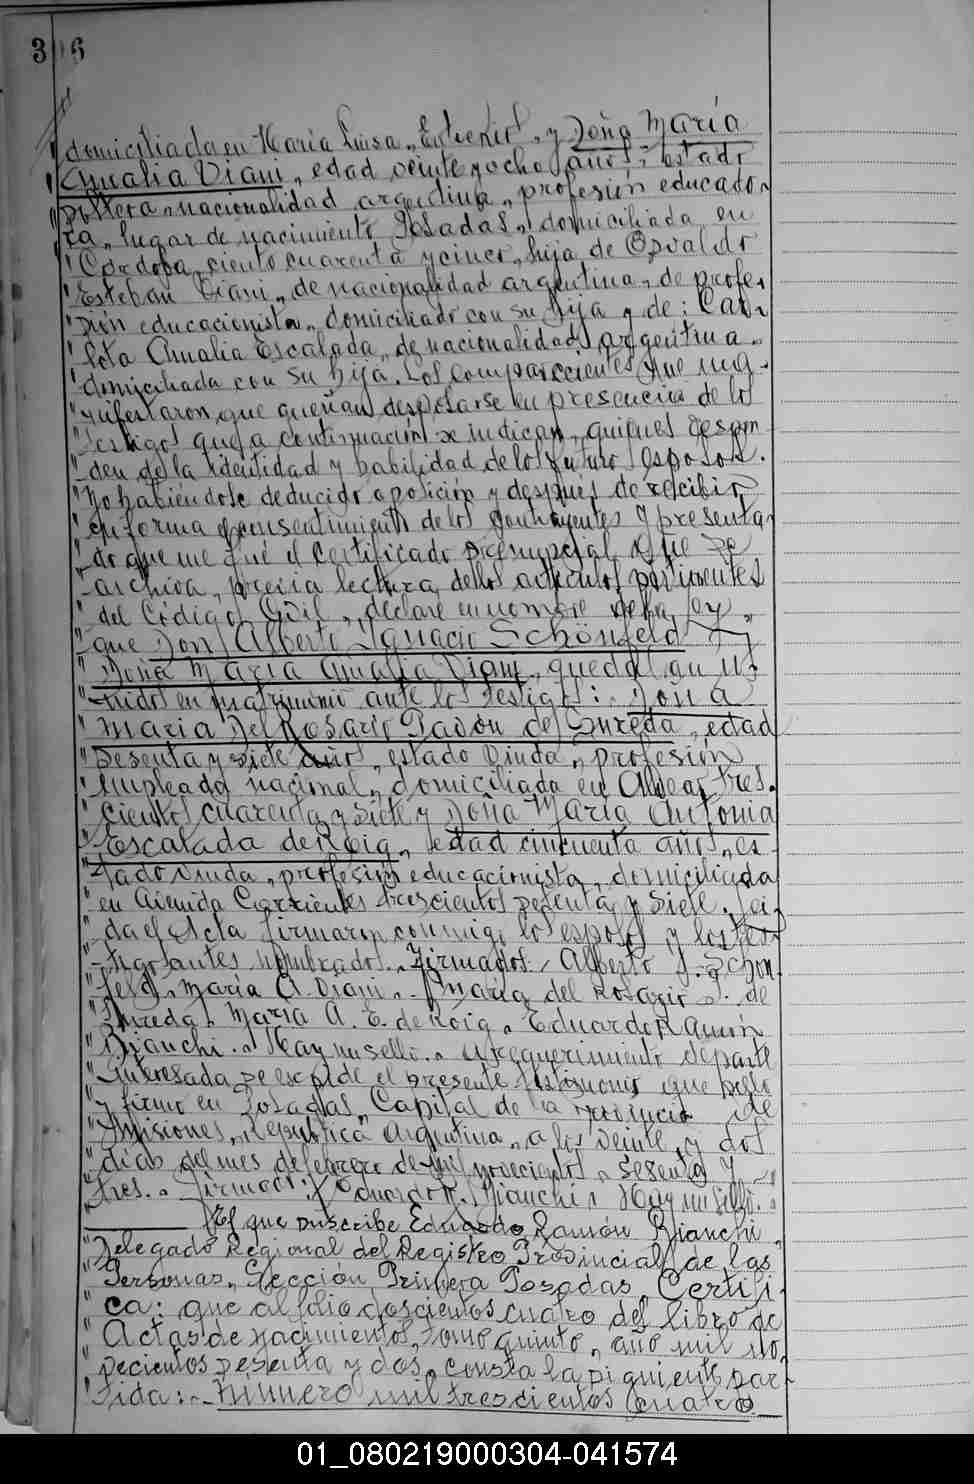 316
"domiciliada en Maria Luisa, y Doña Maria
"Amalia Viani, edad veinte y ocho años; estado
"soltera, nacionalidad argentina, profesión educado-
ra, lugar de nacimiento Posadas, domiciliada en
"Córdoba, ciento cuarenta y cinco, hija de Osvaldo
"Esteban Viani, de nacionalidad argentina, de profe-
"sión educacionista, domiciliado con su hija y de: Car-
"lota Amalia Escalada, de nacionalidad argentina.
"domiciliada con su hija. Los comparecientes que ma-
"nifestaron que querían desposarse en presencia de los
"testigos que a continuación se indican, quienes respon
"den de la identidad y habilidad de los futuros esposos.
"No habiéndose deducido oposición y después de recibir
"en forma consentimiento de los contrayentes y presenta
"do que me fué el certificado prenupcial que se
"archiva, previa lectura de los artículos pertinentes
"del Código Civil, declaré en nombre de la ley,
"que Don Alberto Ignacio Schönfeld y
"Doña Maria Amalia Viani, quedaban u-
"nidos en matrimonio ante los testigos: Doña
"Maria Del Rosario Pavón de Sureda, edad
"sesenta y siete años, estado viuda, profesión
"empleada nacional, domiciliada en Alvear tres-
"cientos cuarenta y siete y Doña Maria Antonia
"Escalada de Roig, edad cincuenta años, es-
"tado viuda, profesión educacionista, domiciliada
"en Avenida Corrientes trescientos sesenta y siete. Leí-
"da el Acta firmaron conmigo los esposos y los tes-
"tigos antes nombrados. Firmados: Alberto I. Schön
"feld. Maria A. Viani. Maria del Rosario P. de
"Sureda. Maria A. E. de Roig. Eduardo Ramón
"Bianchi. Hay un sello. A requerimiento de parte
"interesada se expide el presente testimonio que sello
"y firmo en Posadas, Capital de la Provincia de
"Misiones, República Argentina, a los veinte y dos
"días del mes de febrero de mil novecientos sesenta y
"tres. Firmado: Eduardo R. Bianchi. Hay un sello.
El que suscribe Eduardo Ramón Bianchi,
"Delegado Regional del Registro Provincial de las
"Personas, Sección Primera Posadas, Certifi-
"ca: que al folio doscientos cuatro del libro de
"Actas de nacimientos, tomo quinto, año mil no-
"vecientos sesenta y dos, consta la siguiente par-
"tida: Número mil trescientos cuatro
01_080219000304-041574